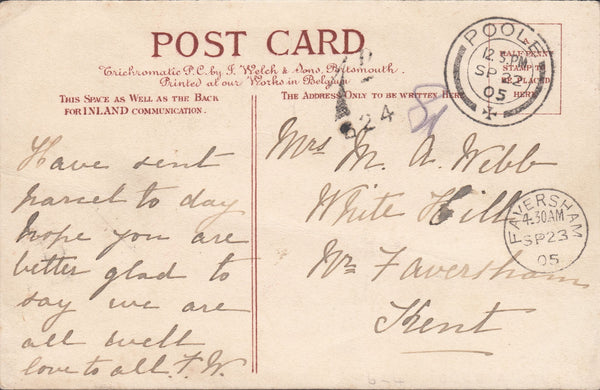 POST CARD
Trichromatic P.C. by J. Welch & Sons, Portsmouth.
Printed at our Works in Belgium
THIS SPACE AS WELL AS THE BACK
FOR INLAND COMMUNICATION.
THE ADDRESS ONLY TO BE WRITTEN HERE
HALF PENNY
STAMP TO
BE PLACED
HERE
POOLE
SP 22
05
624
Have sent
parcel to day
hope you are
better glad to
say we are
all well
love to all. F. W.
Mrs M. A. Webb
White Hill
Nr Faversham
Kent
FAVERSHAM
4.30AM
SP23
05